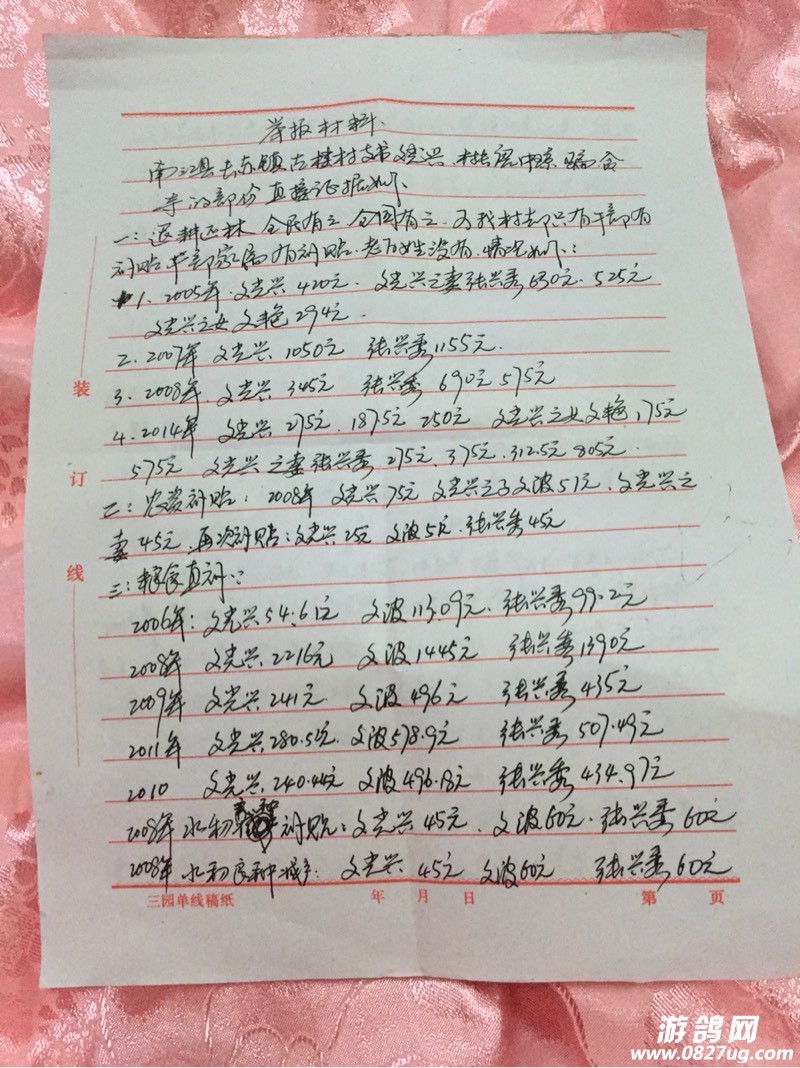 举报材料
南江县去赤镇古楼村支书文光兴、村长 中 骗贪
等的部份直接证据如下、
一:退耕还林 全民有之 全国有之、为我村却只有干部有
补贴 干部家属有补贴、老百姓没有、情况如下:
1、2005年、文光兴420元、文光兴之妻张兴秀630元、525元
文光兴之女文艳294元、
2、2007年 文光兴 1050元 张兴秀1155元、
3、2008年 文光兴 345元 张兴秀 690元 575元
4、2014年 文光兴 275元、1875元 250元 文光兴之女文艳175元
575元 文光兴之妻张兴秀 275元、375元、312.5元 805元、
二:农资补贴:2008年 文光兴75元 文光兴之子文波51元、文光兴之
妻45元、再次补贴:文光兴25元 文波5元、张兴秀45元
三:粮食直补:
2006年:文光兴54.61元 文波113.09元、张兴秀99.2元
2008年 文光兴2216元 文波1445元 张兴秀1390元
2009年 文光兴241元 文波496元 张兴秀435元
2011年 文光兴280.5元 文波578.9元 张兴秀507.49元
2010 文光兴240.44元 文波496.18元 张兴秀434.97元
2008年 水初 补贴:文光兴45元、文波60元、张兴秀60元
2008年 水初良种减产:文光兴 45元 文波60元 张兴秀60元
装
订
线
三园单线稿纸 年 月 日 第 页
游鸽网
www.0827ug.com